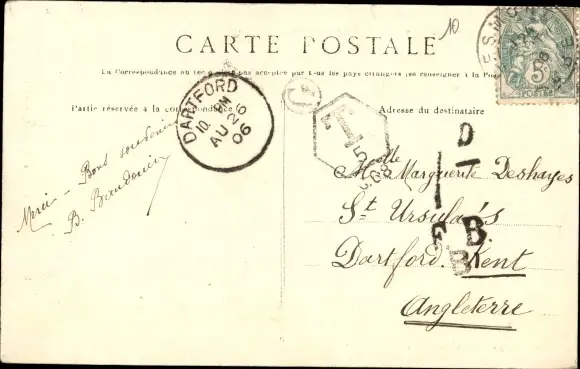 10
CARTE POSTALE
La Correspondance au recto n'est pas acceptée par tous les pays étrangers (se renseigner à la Poste
Partie réservée à la correspondance
Adresse du destinataire
DARTFORD
10 PM
AU 26
06
T
5
POSTES
Merci - Bons souvenirs
B. Baudouin
Melle Marguerite Deshayes
St Ursula's
Dartford. Kent
Angleterre
D
F.B.
B